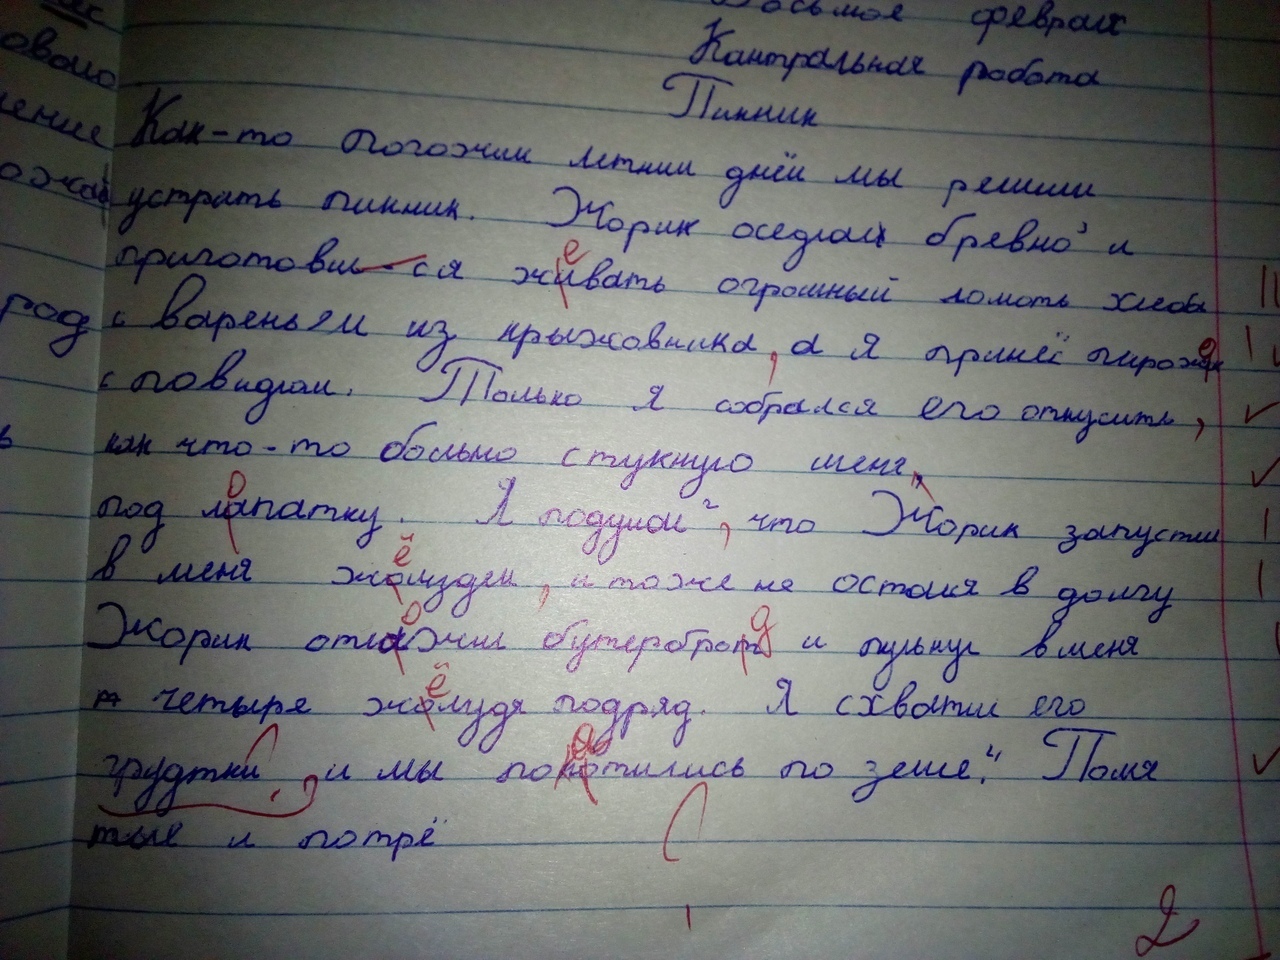 феврал
Кантральная работа
Пикник
Как-то погожим летним днём мы решили
устрать пикник. Жорик оседлал бревно³ и
приготовился живать огромный ломоть хлеба
с вареньем из крыжовника, а я принёс пирожок
с повидлом. Только я собрался его откусить,
как что-то больно стукнуло меня
под лапатку. Я подумал², что Жорик запустил
в меня жолудем, и тоже не остался в долгу
Жорик отлажил бутерброт и пульнул в меня
четыре жолудя подряд. Я схватил его
грудтки, и мы покотились по земле.⁴ Помя
тые и потрё
2